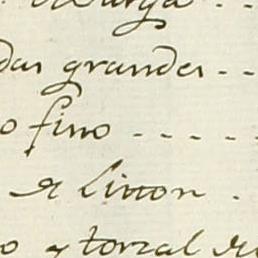 das grandes - -
o fino - - - -
de Litton .
o y torzal de